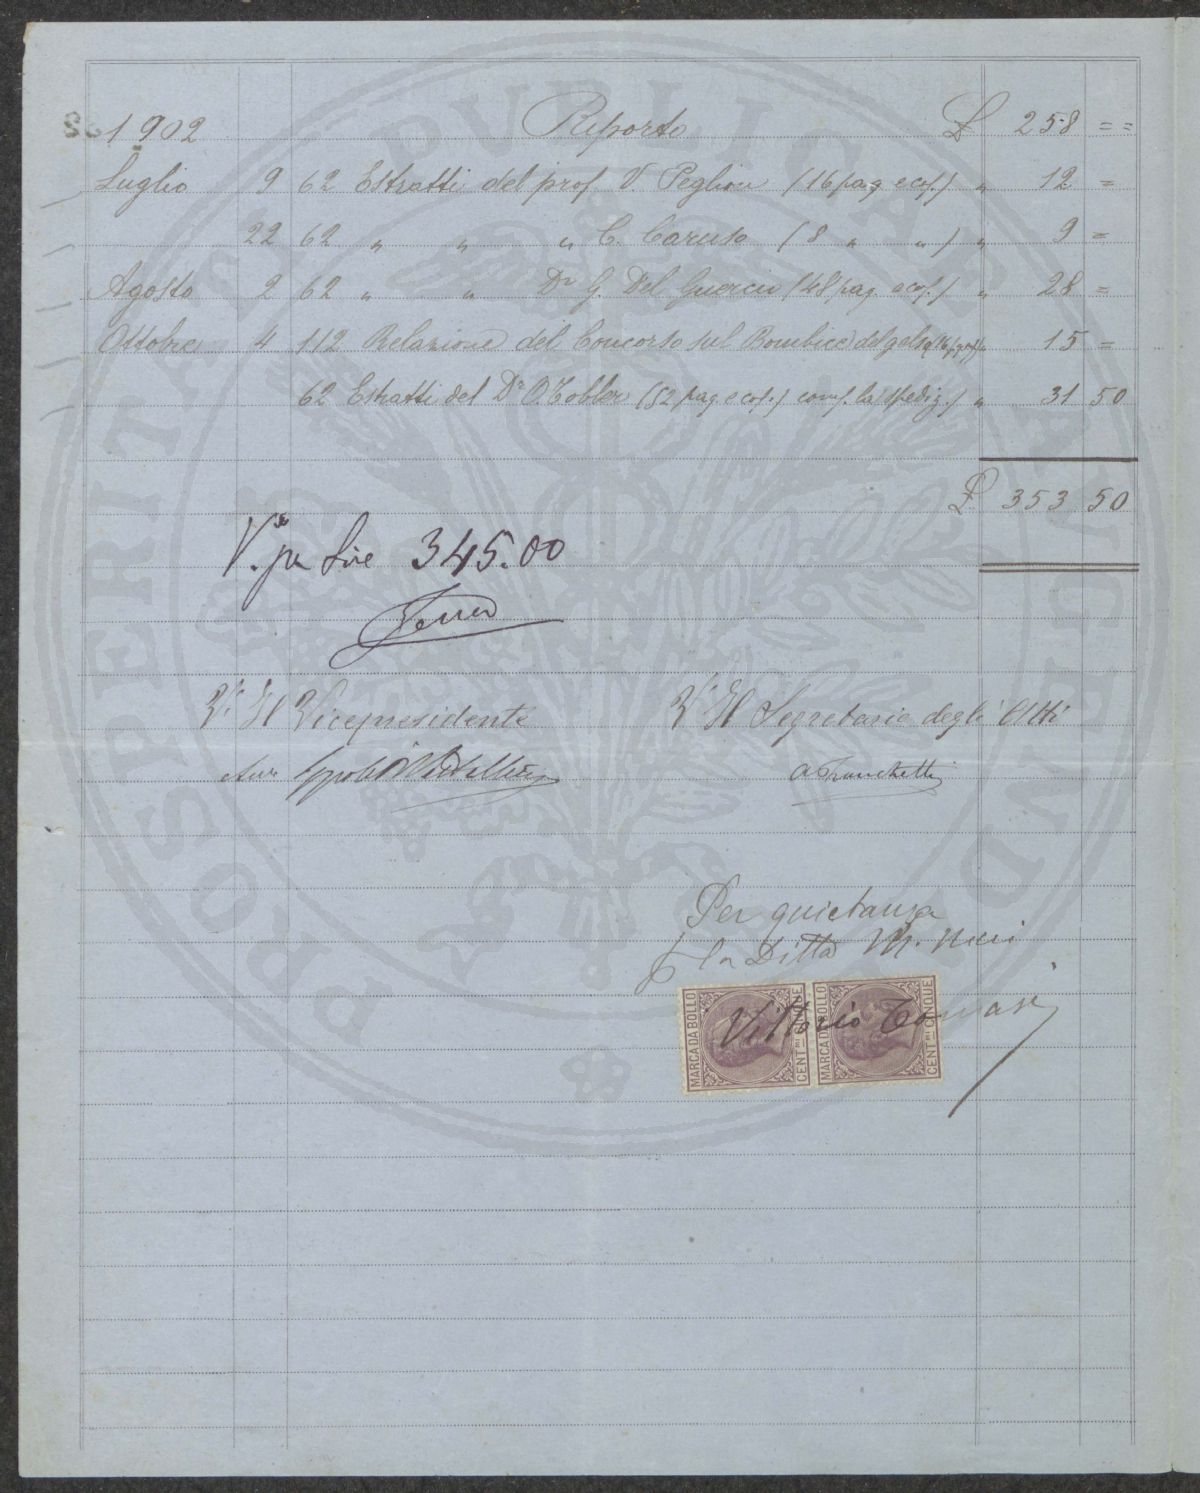 1902 Riporto £ 258 = =
Luglio 9 62 Estratti del prof. V. Peglion (16 pag. e cop.) " 12 =
22 62 " " " C. Caruso (8 " " ) " 9 =
Agosto 2 62 " " Dr G. Del Guercio (48 pag. e cop.) " 28 =
Ottobre 4 112 Relazione del Concorso sul Bombice del gelso " 15 =
62 Estratti del Dr O. Tobler (52 pag. e cop.) comp. la spediz.) " 31 50
£ 353 50
V.to per Lire 345.00
V.° Il Vicepresidente
V.° Il Segretario degli Atti
A Franchetti
Per quietanza
p la Ditta M. Ricci
Vittorio Tomasi
MARCA DA BOLLO CENT.MI CINQUE
MARCA DA BOLLO CENT.MI CINQUE
PROSPERITATI PVBLICAE AVGENDAE